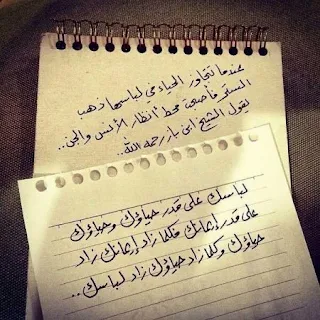 عندما تتجاوز الحياء في لباسها ذهب
الستر فأصبحت محط أنظار الأنس والجن..
يقول الشيخ ابن باز رحمه الله..
لباسك على قدر حياؤك وحياؤك
على قدر إيمانك فكلما زاد إيمانك زاد
حياؤك وكلما زاد حياؤك زاد لباسك..